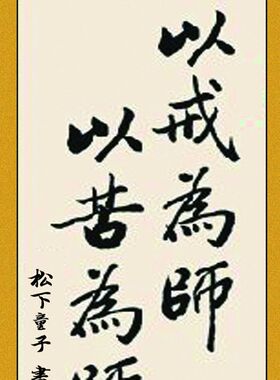 以戒為師
以苦為師
松下童子 書